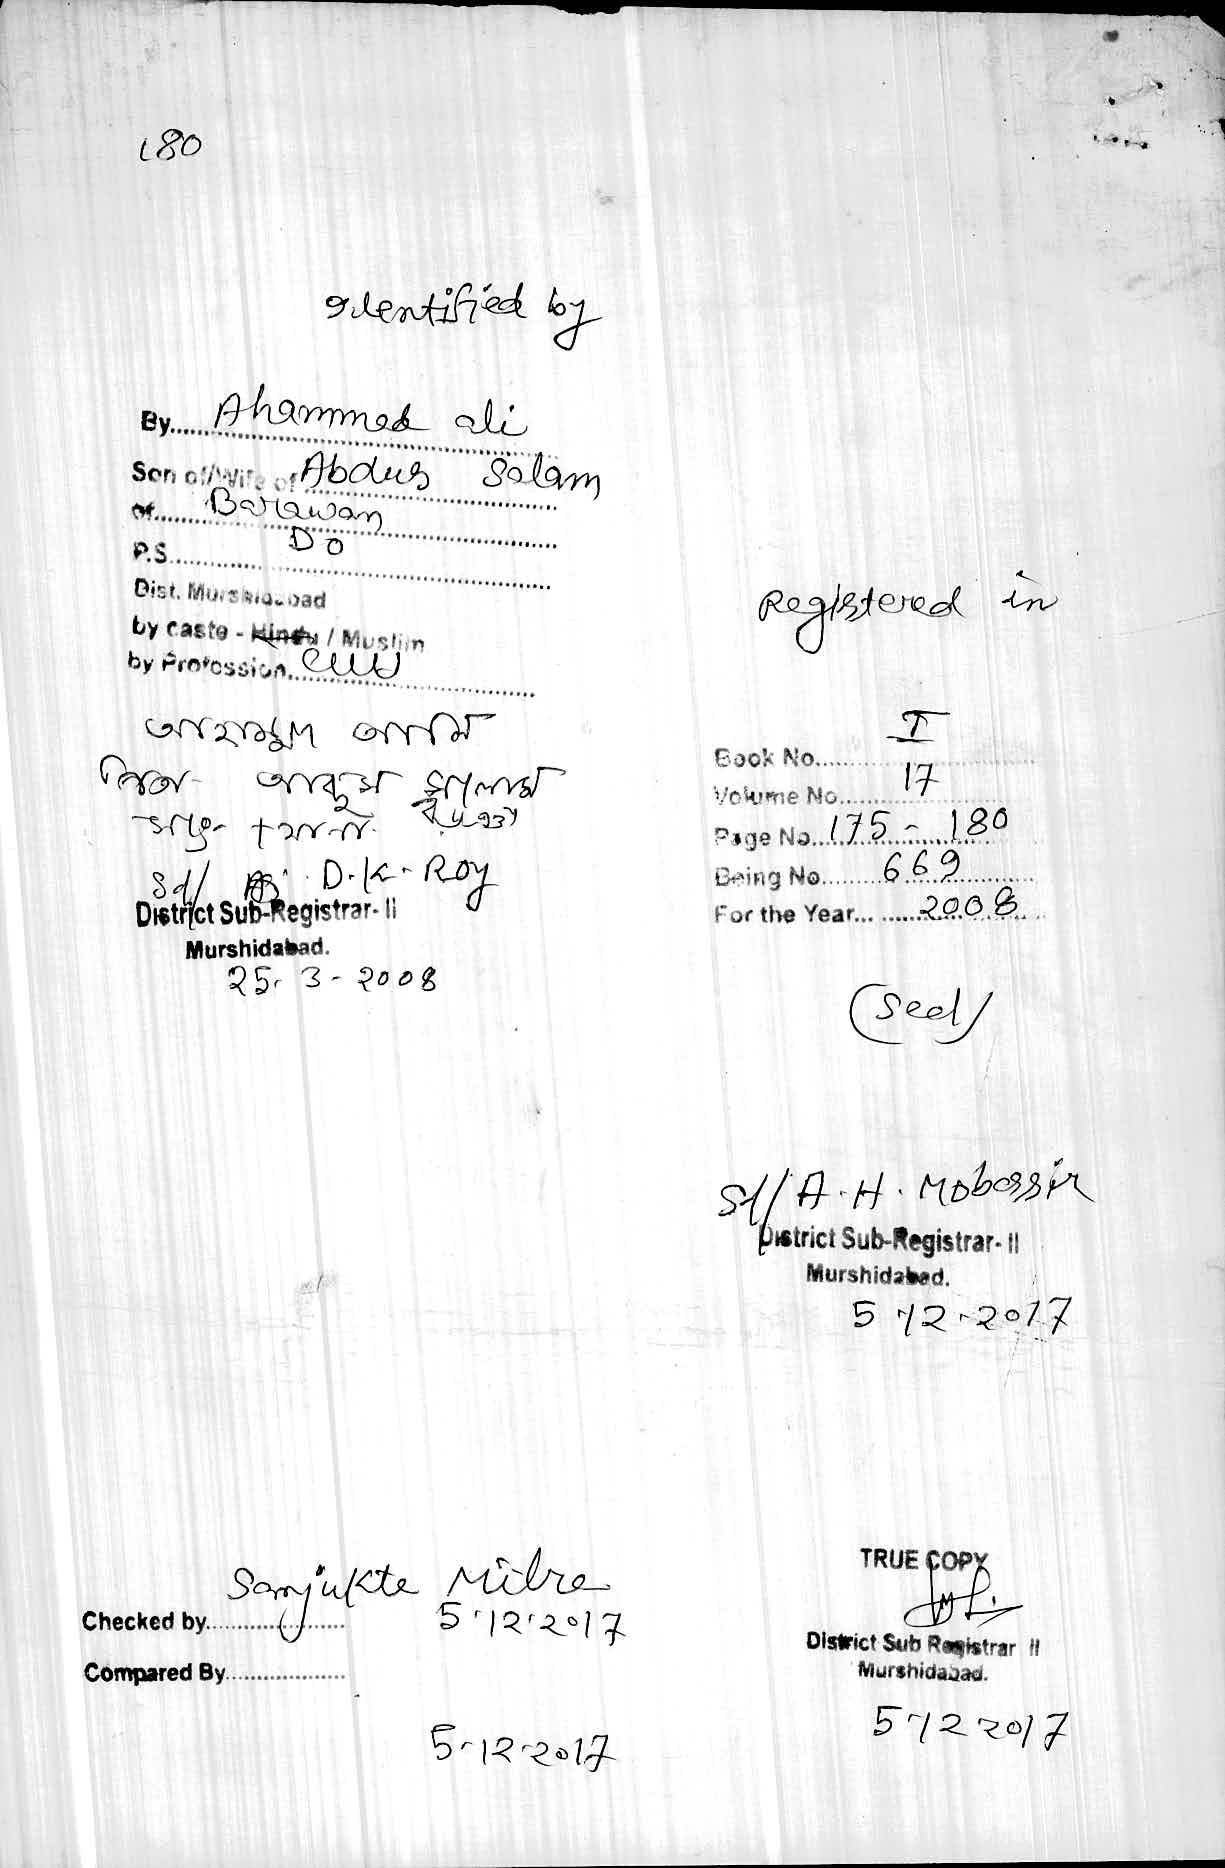 180
Identified by
By......Ahammed ali
Son of/Wife of Abdus Salam
of......Barawan
P.S......Do
Dist. Murshidabad
by caste - Hindu / Muslim
by Profession...
আহাম্মদ আলি
পিতা- আব্দুস সালাম
Sd/ D.K. Roy
District Sub-Registrar- II
Murshidabad.
25. 3 - 2008
Registered in
Book No......I
Volume No......17
Page No...175 - 180
Being No......669
For the Year......2008
(Seal)
Sd/ A. H. Mobassir
District Sub-Registrar- II
Murshidabad.
5 12. 2017
Sanjukta Mitra
Checked by...... 5.12.2017
Compared By......
5.12.2017
TRUE COPY
District Sub Registrar II
Murshidabad.
5 12 2017